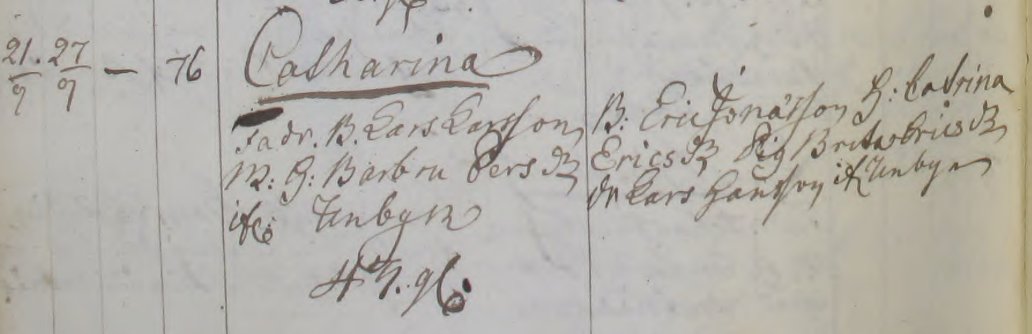 21/9 27/9 — 76 Catharina
Fadr. B. Lars Larsson
M: H: Barbru Persdr
if: Unbyn
B: Eric Jonasson H: Catrina
Ericsdr Pig Brita Ericsdr
dr Lars Hansson if Unbyn